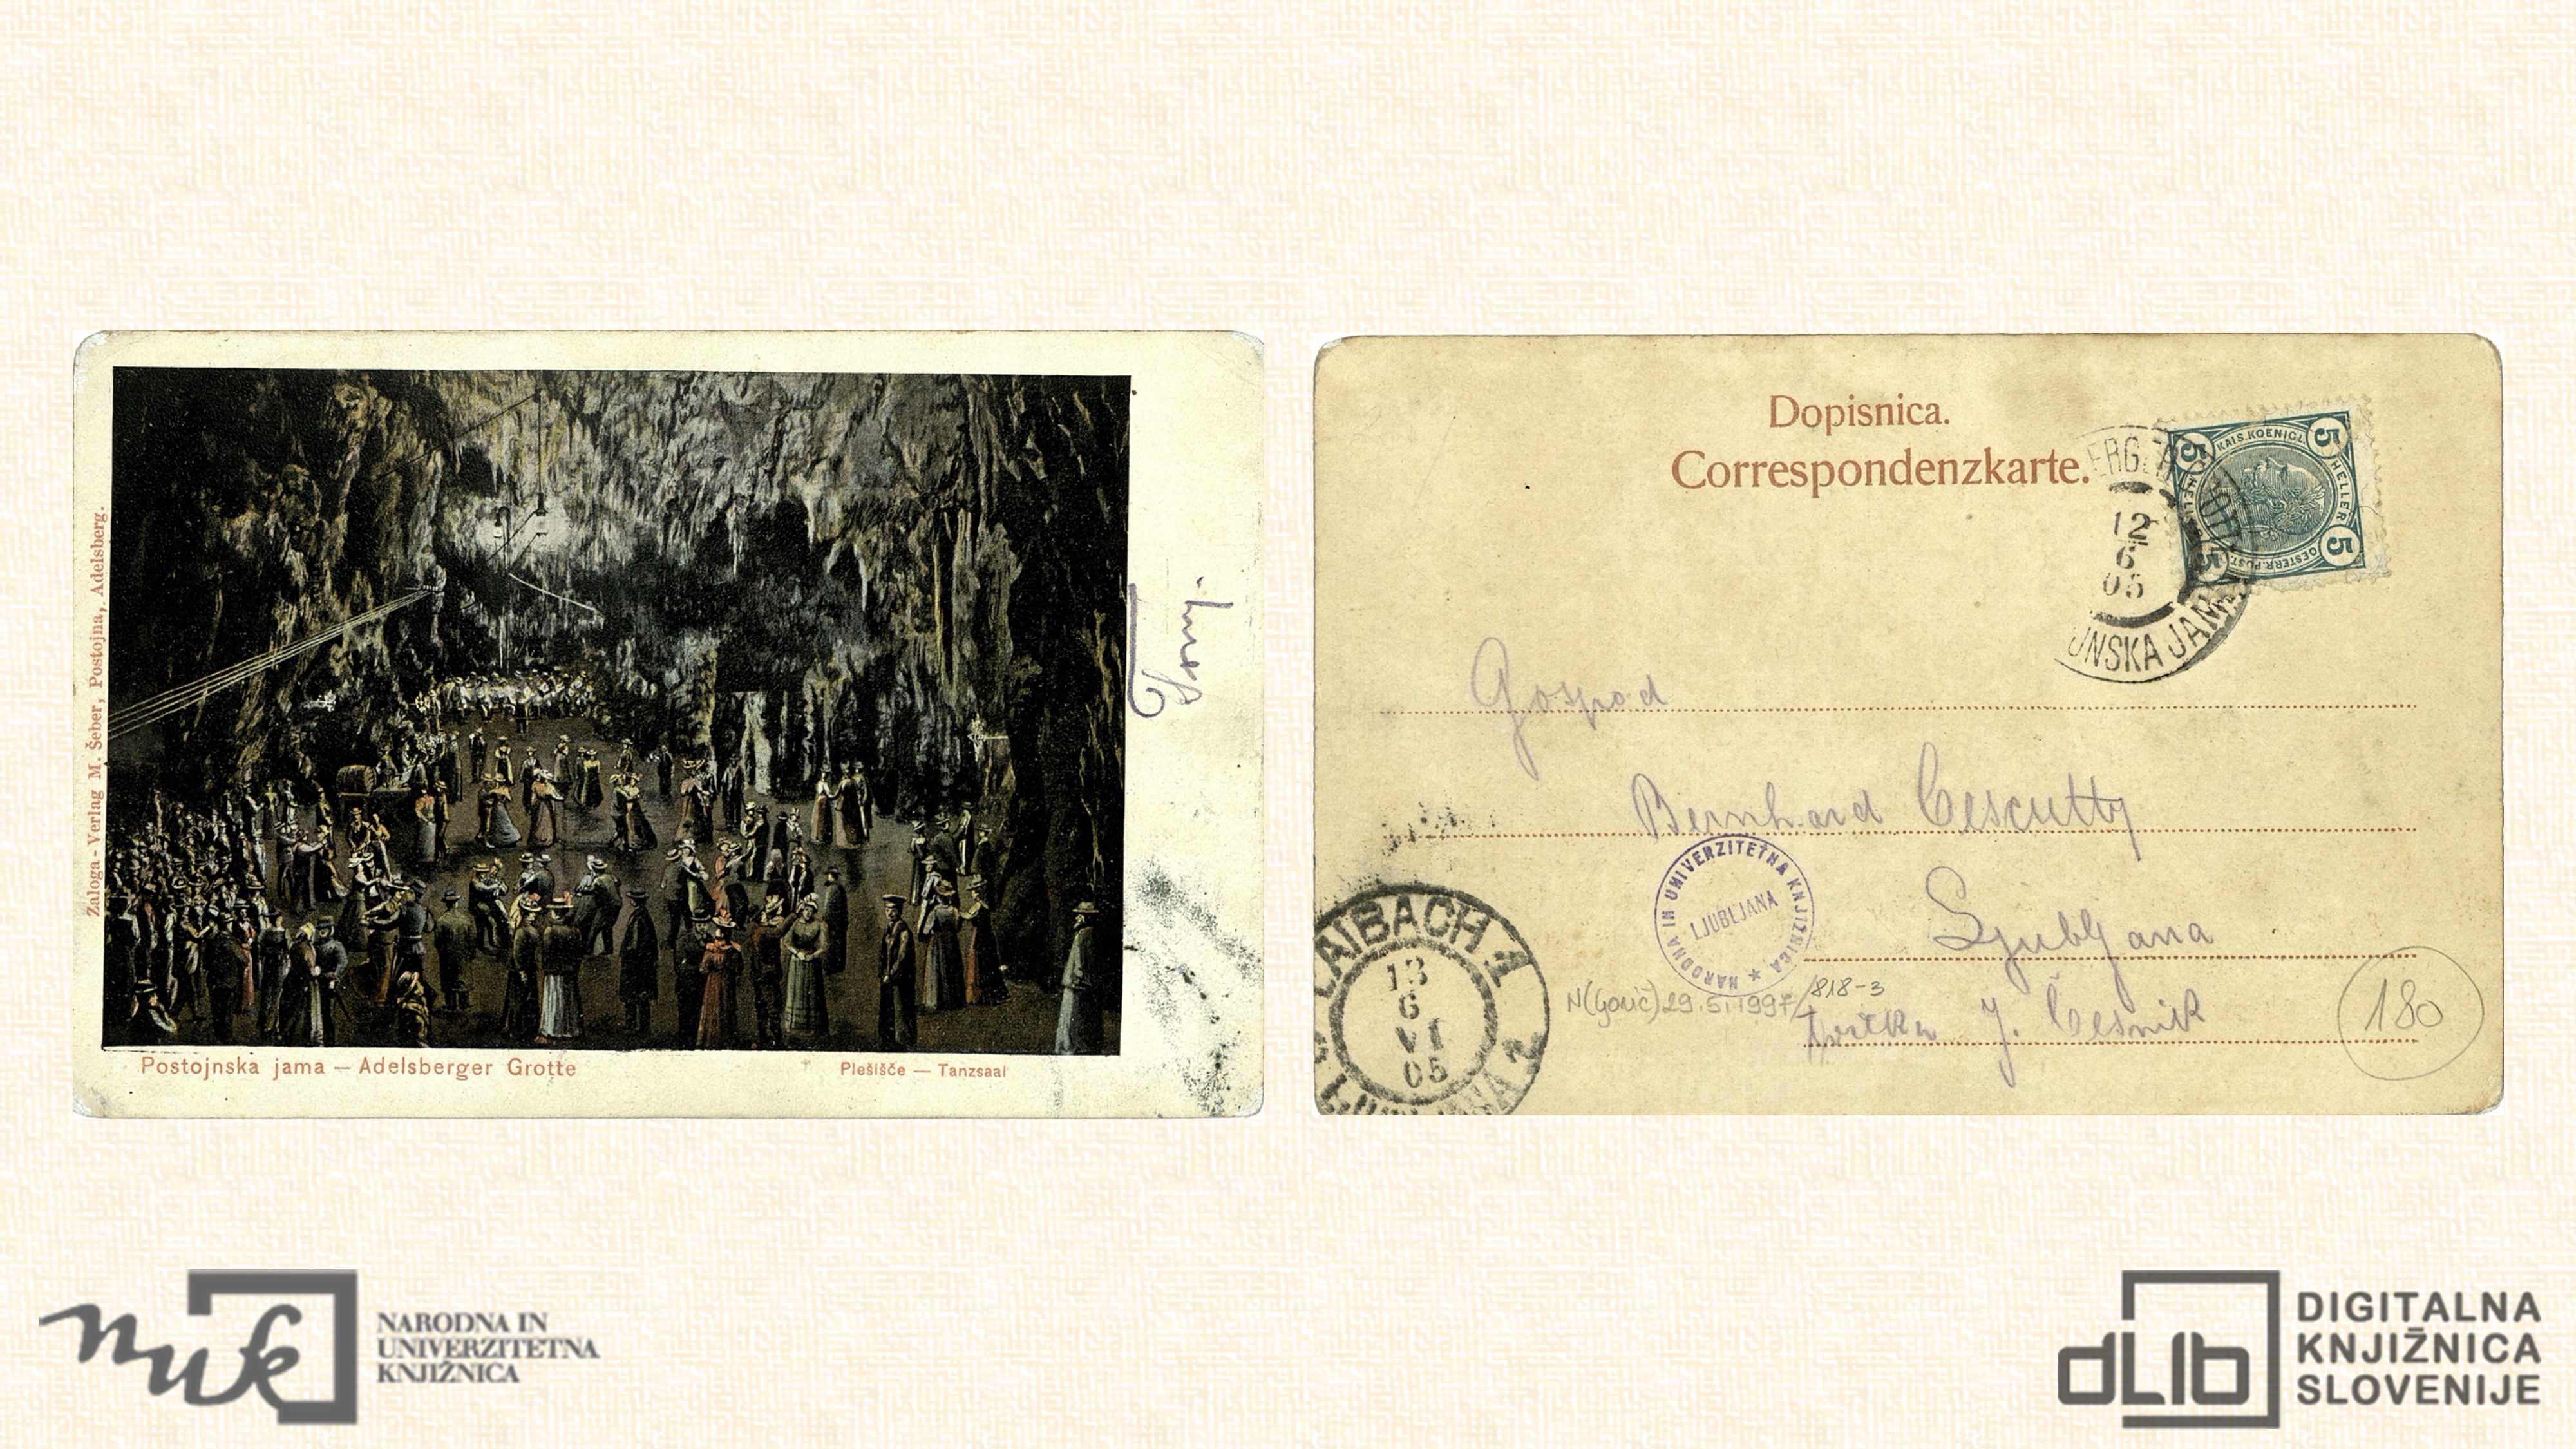 Zaloga - Verlag M. Šeber, Postojna, Adelsberg.
Postojnska jama — Adelsberger Grotte
Plesišče — Tanzsaal
Dopisnica.
Correspondenzkarte.
5 KAIS. KOENIGL. 5
HELLER
5 OESTERR. POST. 5
12
6
05
JNSKA JAM
Gospod
Bernhard Cescutty
Ljubljana
J. Česnik
NARODNA IN UNIVERZITETNA KNJIŽNICA ★
LJUBLJANA
29.5.1997/818-3
180
LAIBACH 1
13
6
VI
05
NARODNA IN
UNIVERZITETNA
KNJIŽNICA
nuk
dLib
DIGITALNA
KNJIŽNICA
SLOVENIJE